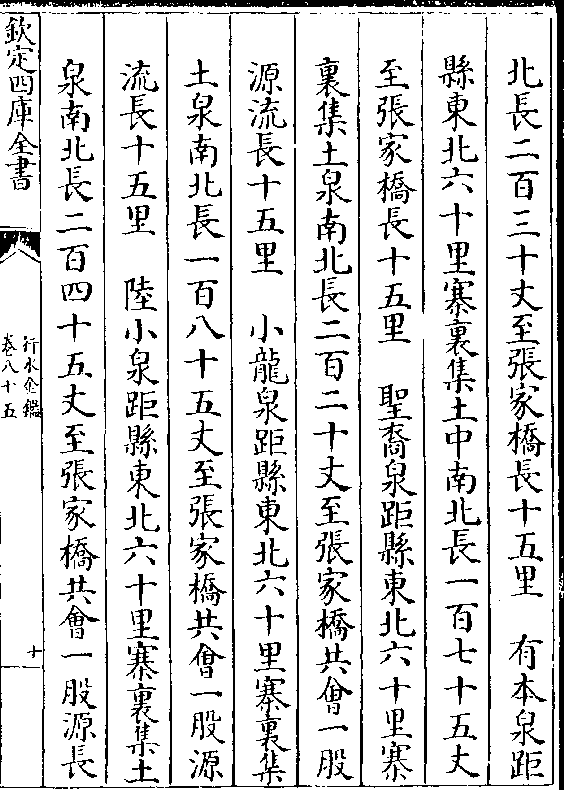 北長二百三十丈至張家橋長十五里　有本泉距
縣東北六十里寨裏集土中南北長一百七十五丈
至張家橋長十五里　聖裔泉距縣東北六十里寨
裏集土泉南北長二百二十丈至張家橋共會一股
源流長十五里　小龍泉距縣東北六十里寨裏集
土泉南北長一百八十五丈至張家橋共會一股源
流長十五里　陸小泉距縣東北六十里寨裏集土
泉南北長二百四十五丈至張家橋共會一股源長
欽定四庫全書
行水金鑑
卷八十五
十